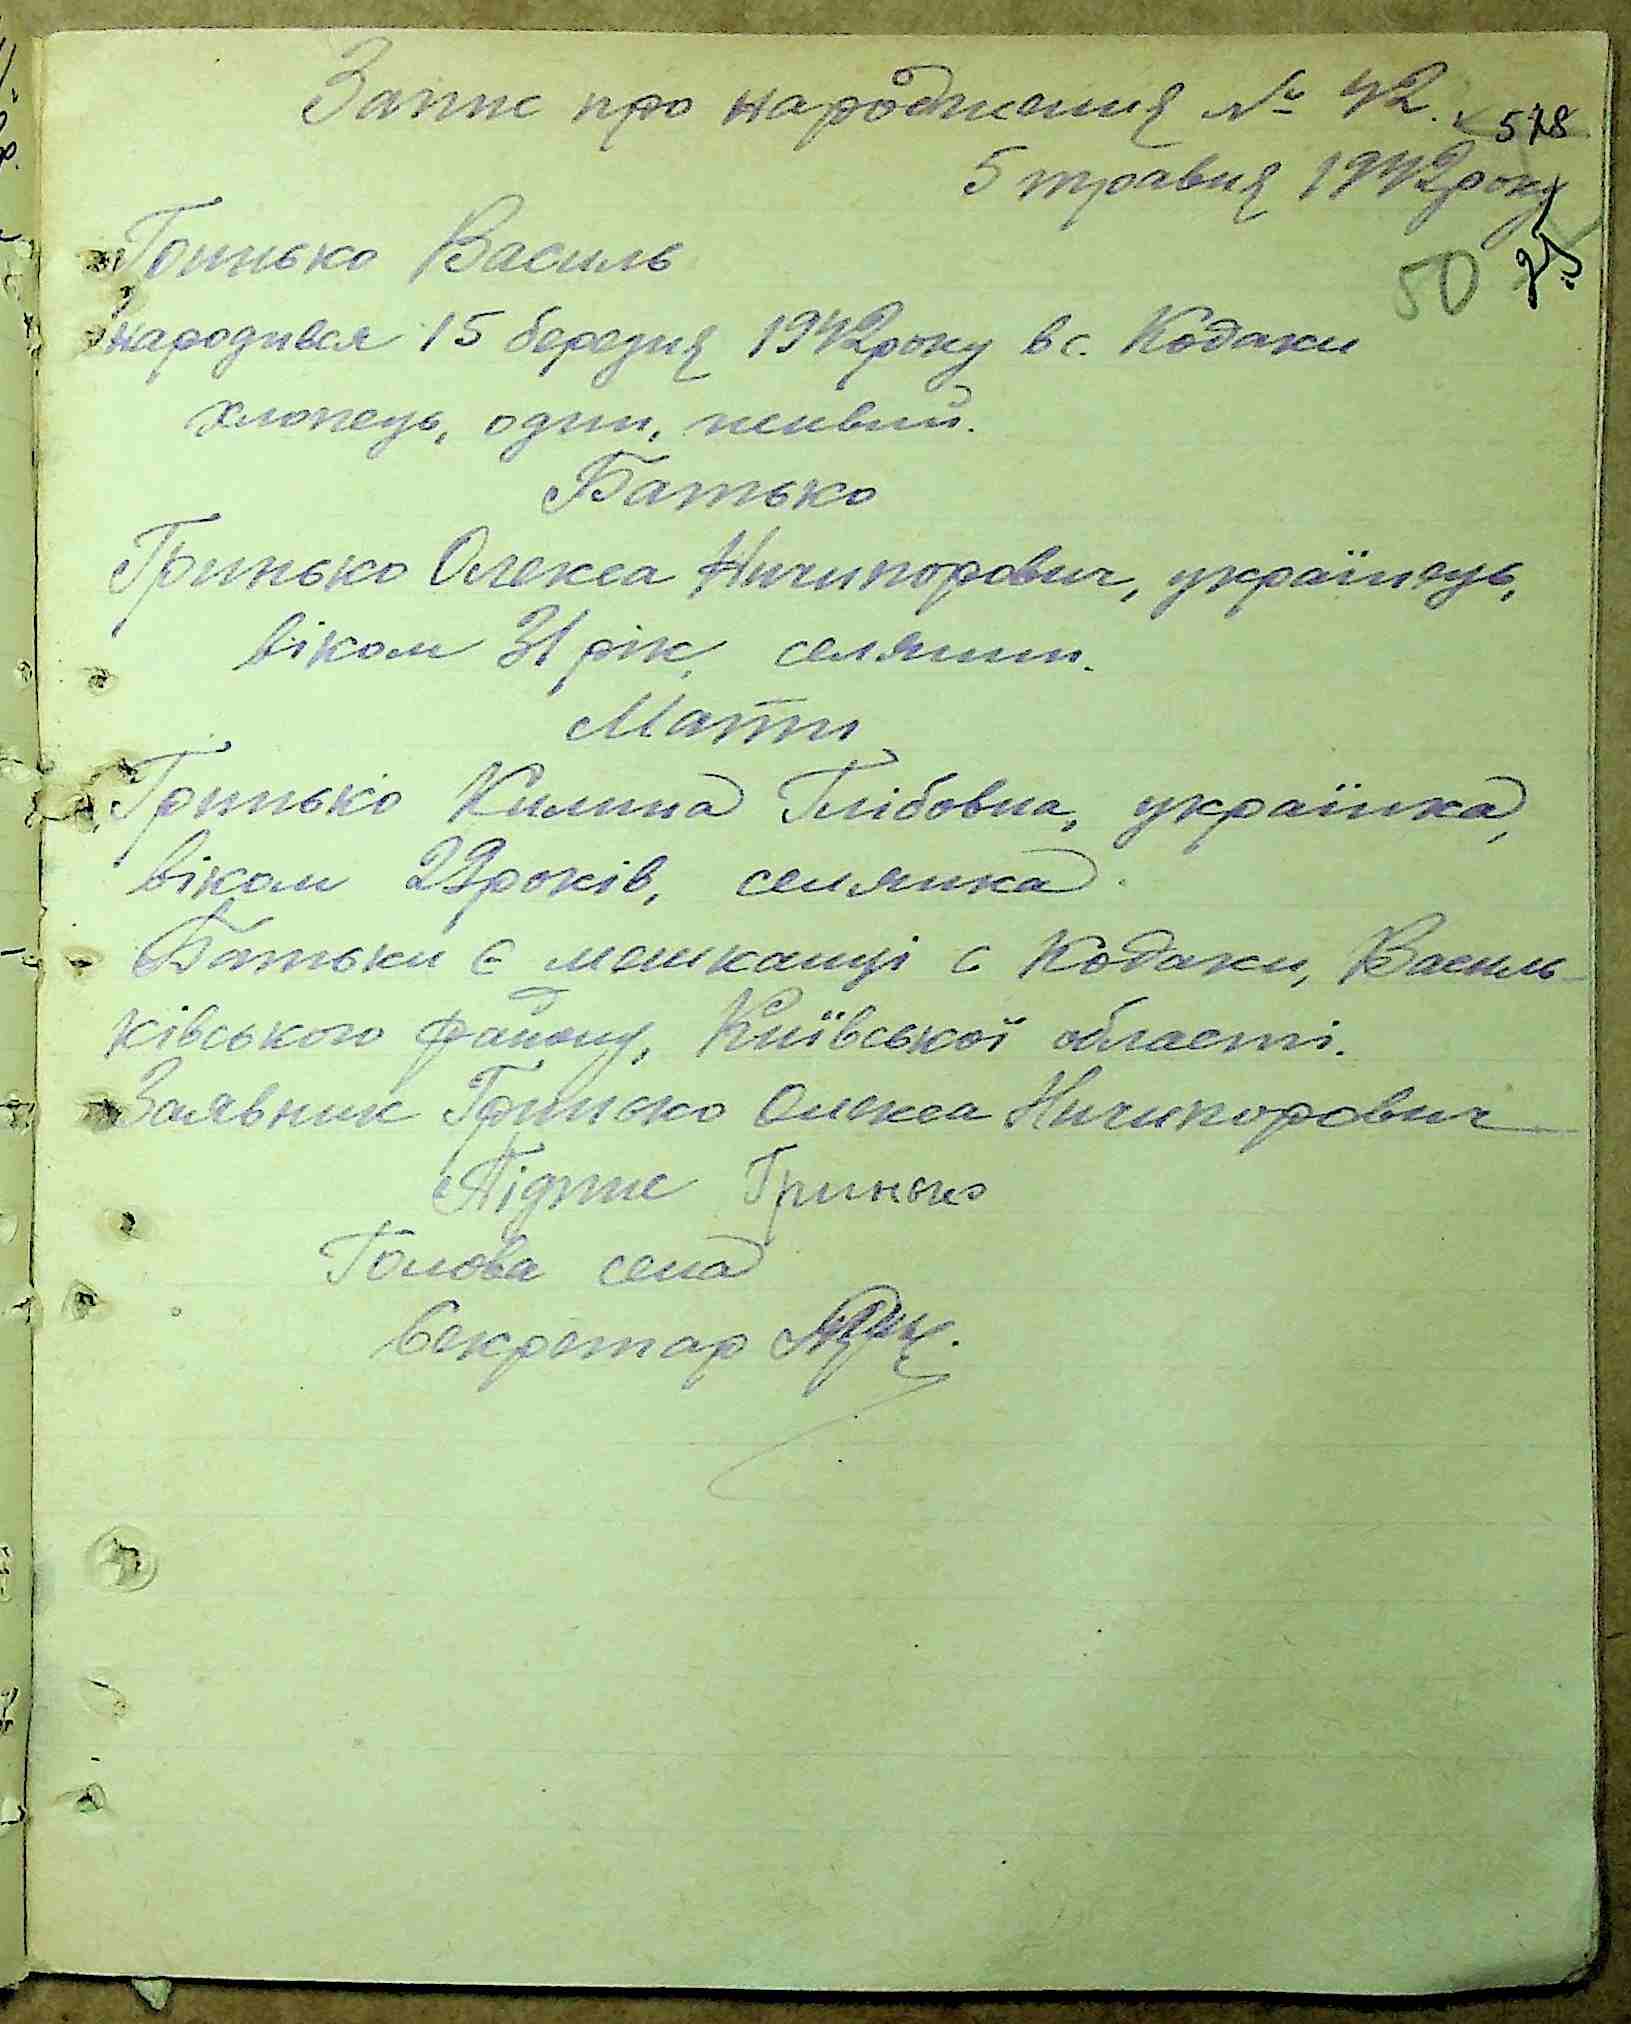 Запис про народження № 42.
578
5 травня 1942 року
Гринько Василь
50
25
народився 15 березня 1942 року в с. Кодаки
хлопець, один, живий.
Батько
Гринько Олекса Ничипорович, українець,
віком 31 рік, селянин.
Мати
Гринько Килина Глібовна, українка,
віком 29 років, селянка.
Батьки є мешканці с Кодаки, Василь-
ківського району, Київської області.
Заявник Гринько Олекса Ничипорович
Підпис Гринько
Голова села
Секретар